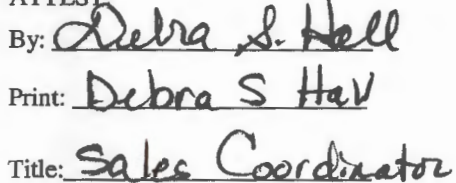 ATTEST
By: Debra S. Hall
Print: Debra S Hall
Title: Sales Coordinator